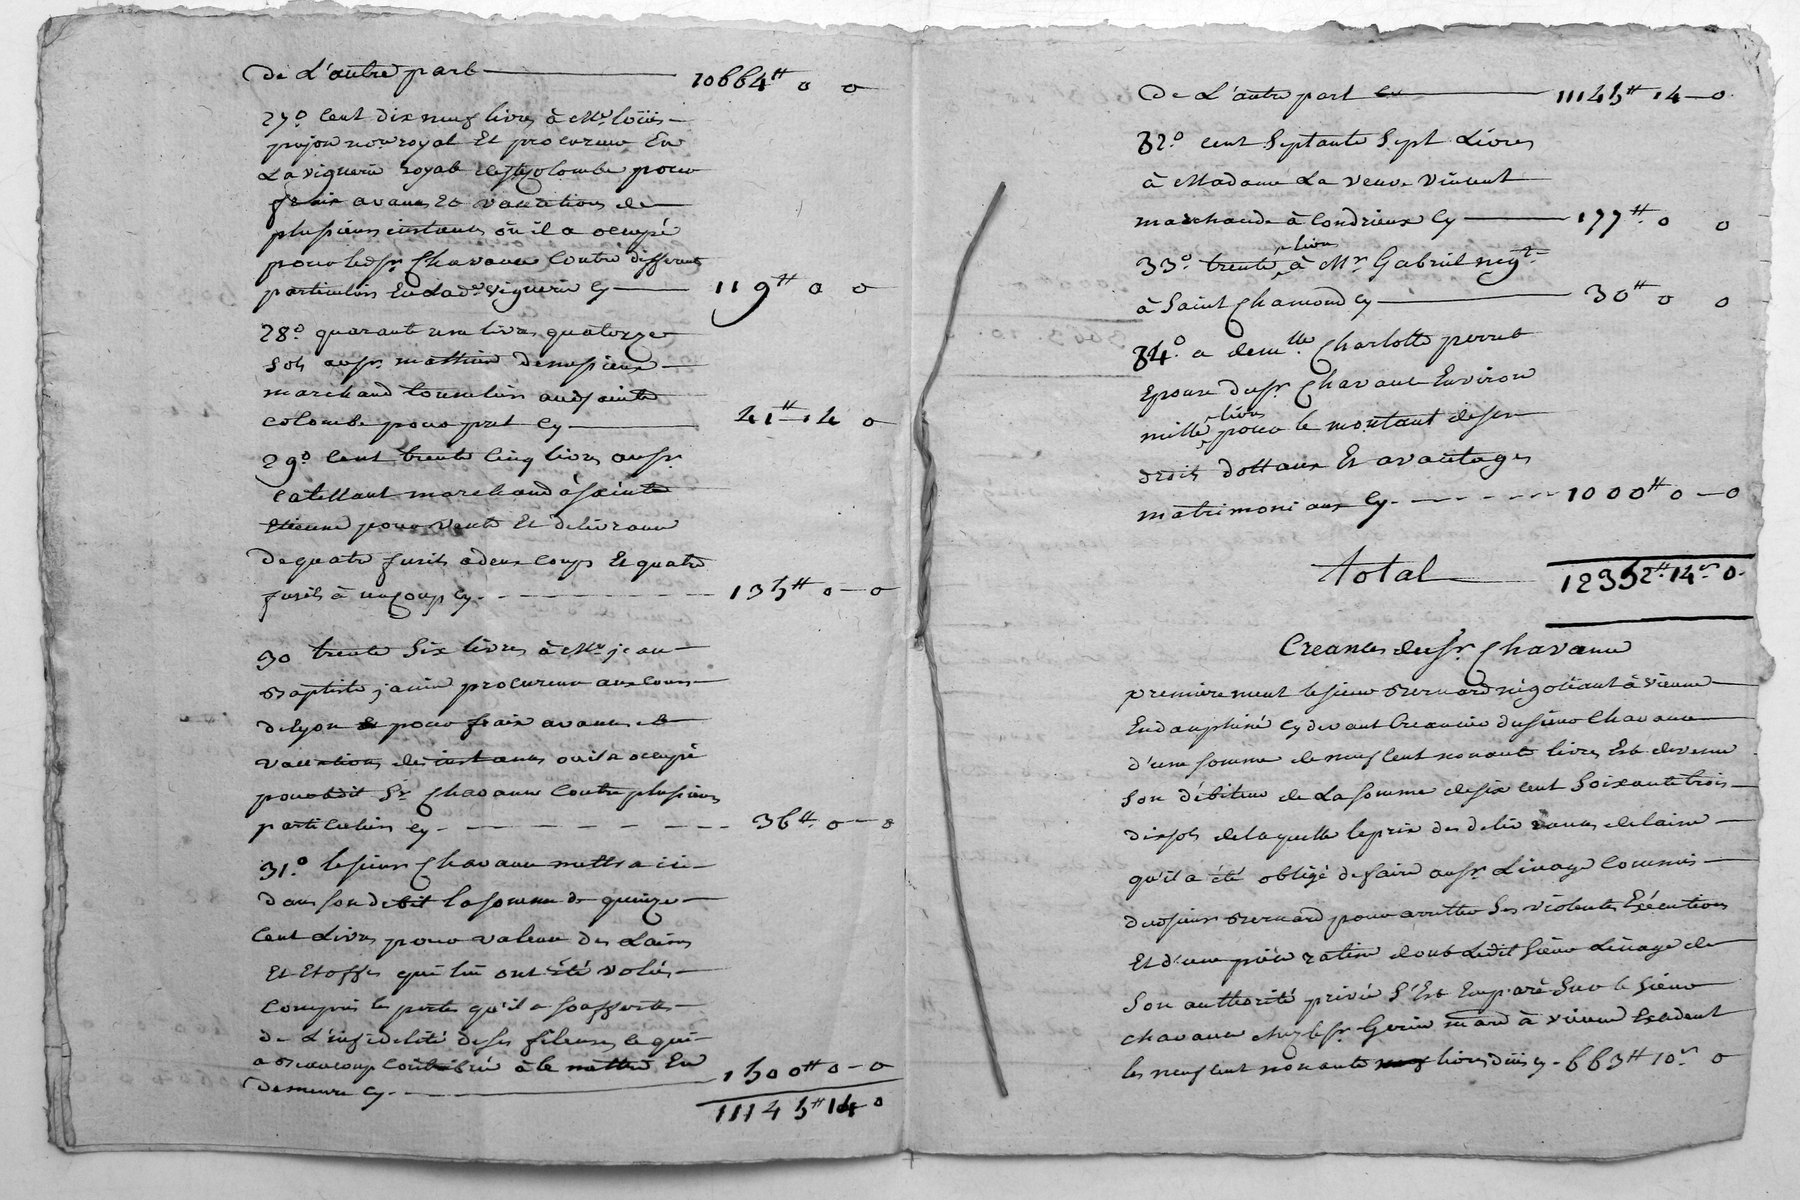 De L'autre part 10664# 0 0
27° Cent dix neuf livres à Me loüis
pujon nore royal Et procureur En
La viguerie royale de Ste Colombe pour
fraix avances Et vacations de
plusieurs instances où il a occupé
pour le dsr Chavanne Contre differents
particuliers En lade viguerie Cy 119# 0 0
28° quarante une livres quatorze
Sols au sr mathieu
marchand audsainte
Colombe pour pret Cy 41# 14 0
29° Cent trente Cinq livres au sr
Catelland marchand à sainte
Etienne pour vente Et delivrance
De quatre fusils a deux Coups Et quatre
fusils à un Coup Cy 135# 0 0
30 trente Six livres à Me jean
Baptiste janin procureur aux Cours
de lyon pour fraix avances et
vacations des instances ou il a occupé
pour ledit Sr Chavanne Contre plusieurs
particuliers Cy 36# 0 0
31° le sieur Chavanne mettra ici
dans son debit la somme de quinze
Cent Livres pour valeur des Laines
Et Etoffes qui lui ont été volées
Compris les pertes qu'il a soufferte
de L'infidelité de ses fileuses ce qui
a Beaucoup Contribué à le mettre En
Demeure Cy 1500# 0 0
11145# 14 0
De L'autre part Cy 11145# 14 0
32° cent Septante Sept Livres
à Madame La veuve vincent
marchande à Condrieux Cy 177# 0 0
33° trente livres à Mr Gabriel negt
à Saint Chamond Cy 30# 0 0
34° a demlle Charlotte perret
Epouse dusr Chavanne Environ
mille livres pour le montant de ses
droits dottaux Et avantages
matrimoniaux Cy 1000# 0 0
total 12352# 14s 0
Creances dusr Chavanne
premierement le sieur Bernard négotiant à vienne
En dauphiné Cy devant Creancier du sieur Chavanne
d'une somme de neuf Cent nonante livres Est devenu
Son débiteur de La somme de six Cent Soixante trois
dix sols de laquelle le prix des delivrances de laine
qu'il a été obligé de faire au sr Linage Commis
dudsieur Bernard pour arretter Ses violentes Exécutions
Et d'une pièce ratine dont Ledit Sieur Linage de
Son authorité privée S'Est Emparé Sur le Sieur
Chavanne chez le sr Gerin mard à vienne Excedent
les neuf Cent nonante livres dües Cy 663# 10s 0